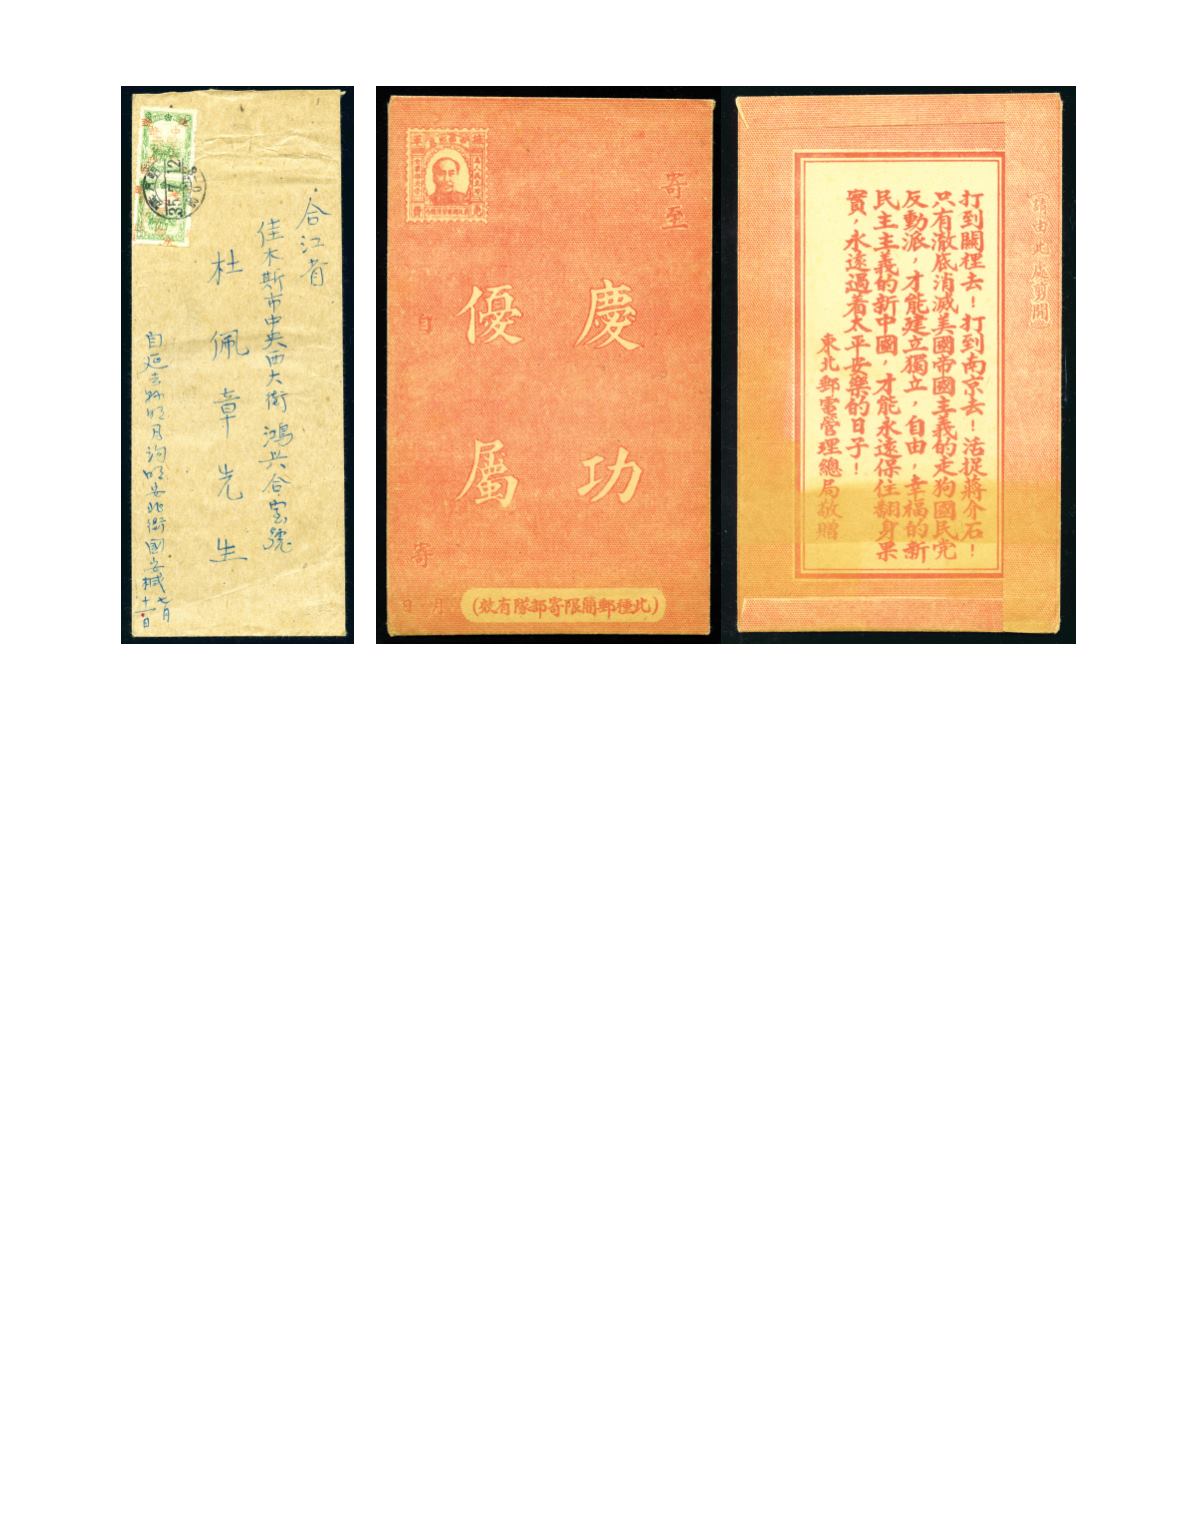 合江省
佳木斯市中央西大街鴻兴合宝號
杜佩章先生
自延吉縣明月溝明安北街國安械
七月
十一日
35.7.12
寄至
慶功
優屬
自
寄
月 日
(此種郵簡限寄部隊有效)
請由此處剪開
打到關裡去！打到南京去！活捉蔣介石！
只有澈底消滅美國帝國主義的走狗國民党
反動派，才能建立獨立，自由，幸福的新
民主主義的新中國，才能永遠保住翻身果
實，永遠過着太平安樂的日子！
東北郵電管理總局敬贈